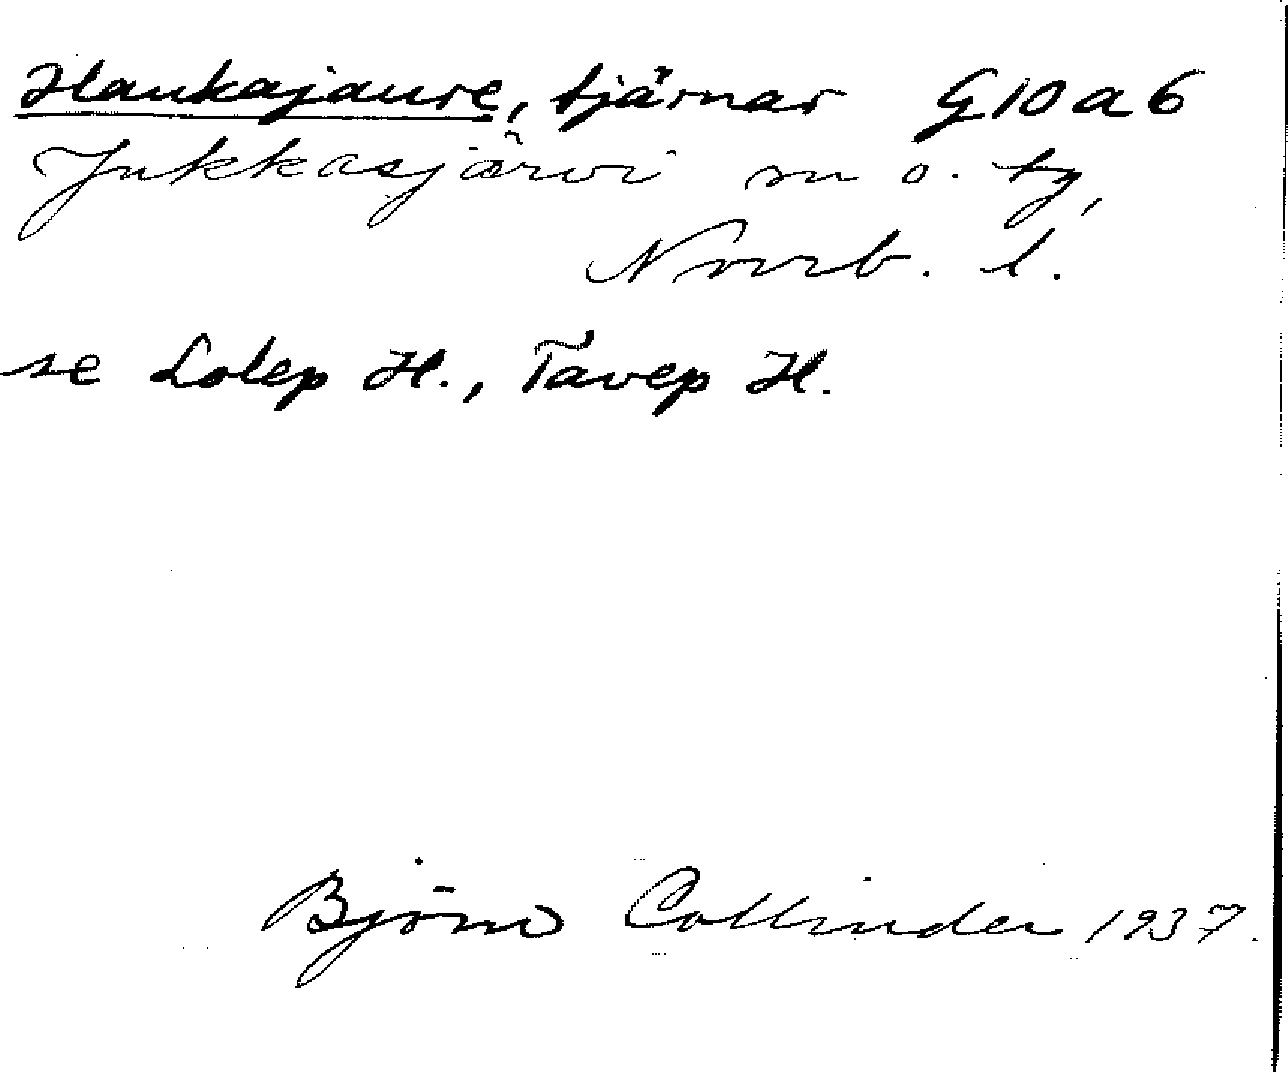 Haukajaure, tjärnar G10a6
Jukkasjärvi sn o. tg,
Norrb. l.
se Lolep H., Tavep H.
Björn Collinder 1937.